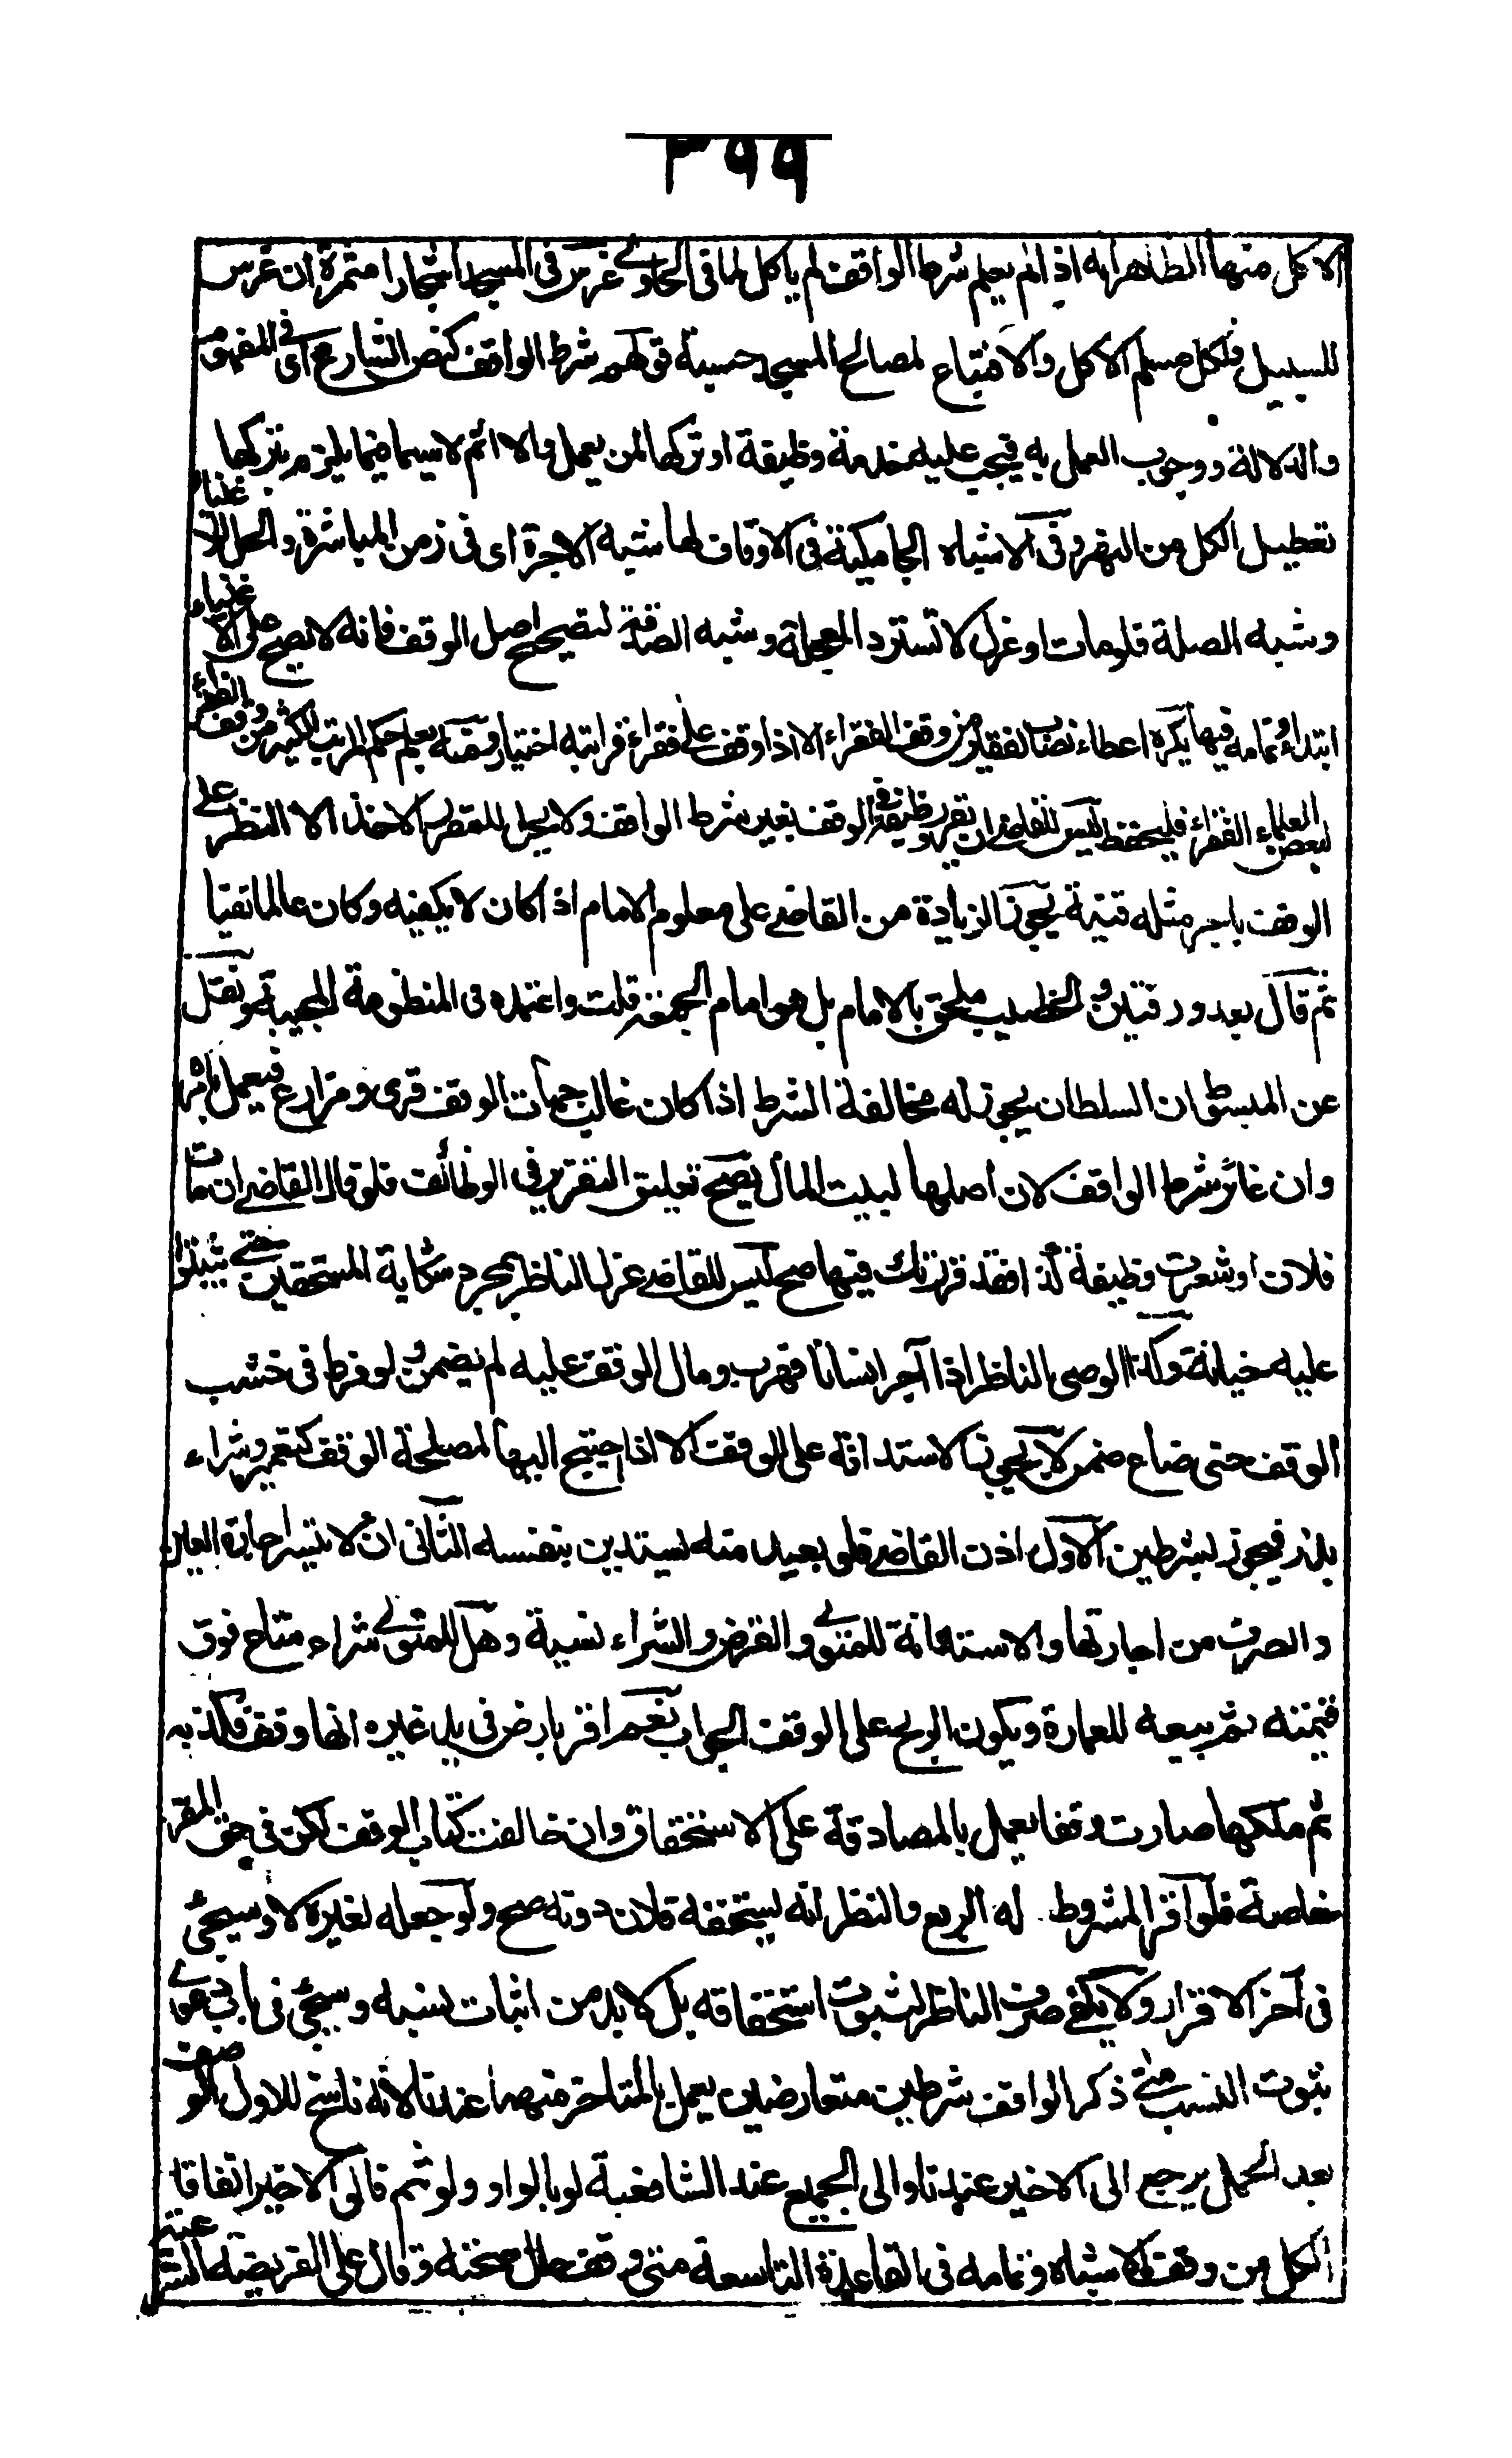 ٣٩٩
الاكل منها الظاهر انه اذا لم يعلم شرط الواقف لم ياكل لما فى الحاوى غرس فى المسجد اشجارا مثمرة ان غرس
للسبيل فلكل مسلم الاكل والا فتباع لمصالح المسجد حسبة قولهم شرط الواقف كنص الشارع اى فى المفهوم
والدلالة ووجوب العمل به فيجب عليه خدمة وظيفة او تركها لمن يعمل والا اثم لا سيما فيما يلزم بتركها
تعطيل الكل من النهر وفى الاشباه الجامكية فى الاوقاف لها شبه الاجرة اى فى زمن المباشرة والحل للاغنياء
وشبه الصلة فلو مات او عزل لا تسترد المعجلة وشبه الصدقة لتصحيح اصل الوقف فانه لا يصح على الاغنياء
ابتداء وتمامه فيها يكره اعطاء نصاب لفقير من وقف الفقراء الا اذا وقف على فقراء قرابته اختيار ومنه يعلم حكم المرتب الكثير من وقف الفقراء
لبعض العلماء الفقراء فليحفظ ليس للقاضى ان يقرر وظيفة فى الوقف بغير شرط الواقف ولا يحل للمقرر الاخذ الا النظر على
الوقف باجر مثله قنية يجوز الزيادة من القاضى على معلوم الامام اذا كان لا يكفيه وكان عالما تقيا
ثم قال بعد ورقتين والخطيب ملحق بالامام بل هو امام الجمعة قلت واعتمده فى المنظومة المحبية ونقل
عن المبسوط ان السلطان يجوز له مخالفة الشرط اذا كان غالب جهات الوقف قرى ومزارع فيعمل بامره
وان غاير شرط الواقف لان اصلها لبيت المال يصح تعليق التقرير فى الوظائف فلو قال القاضى ان مات
فلان او شغرت وظيفة كذا فقد قررتك فيها صح ليس للقاضى عزل الناظر بمجرد شكاية المستحقين حتى يثبتوا
عليه خيانة وكذا الوصى الناظر اذا آجر انسانا فهرب ومال الوقف عليه لم يضمن ولو فرط فى خشب
الوقف حتى ضاع ضمن لا يجوز الاستدانة على الوقف الا اذا احتيج اليها لمصلحة الوقف كتعمير وشراء
بذر فيجوز بشرطين الاول اذن القاضى فلو بعيد منه يستدين بنفسه الثانى ان لا تتيسر اجارة العين
والصرف من اجارتها والاستدانة للمتولى والقرض والشراء نسية وهل للمتولى شراء متاع فوق
قيمته ثم بيعه للعمارة ويكون الربح على الوقف الجواب نعم اقر بارض فى يد غيره انها وقف وكذبه
ثم ملكها صارت وقفا يعمل بالمصادقة على الاستحقاق وان خالفت كتاب الوقف لكن فى حق المقر
خاصة فلو اقر المشروط له الريع والنظر انه يستحقه فلان دونه صح ولو جعله لغيره لا وسيجئ
فى آخر الاقرار ولا يكفى صرف الناظر لثبوت استحقاقه بل لا بد من اثبات نسبه وسيجئ فى باب دعوى
ثبوت النسب متى ذكر الواقف شرطين متعارضين يعمل بالمتاخر منهما عندنا لانه ناسخ للاول الوصف
بعد الجمل يرجع الى الاخير عندنا والى الجميع عند الشافعية لو بالواو ولو ثم فالى الاخير اتفاقا
الكل من وقف الاشباه وتمامه فى القاعدة التاسعة متى وقف حال صحته وقال على الفريضة الشرعية